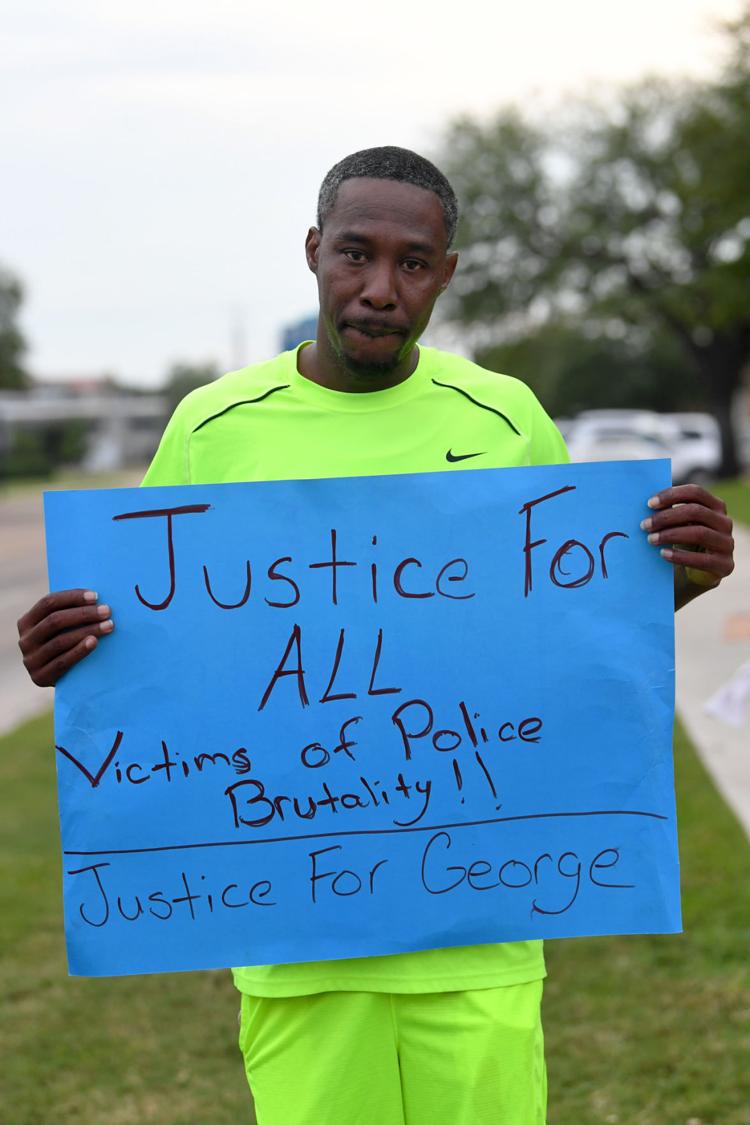 Justice For
ALL
Victims of Police
Brutality!!
Justice For George